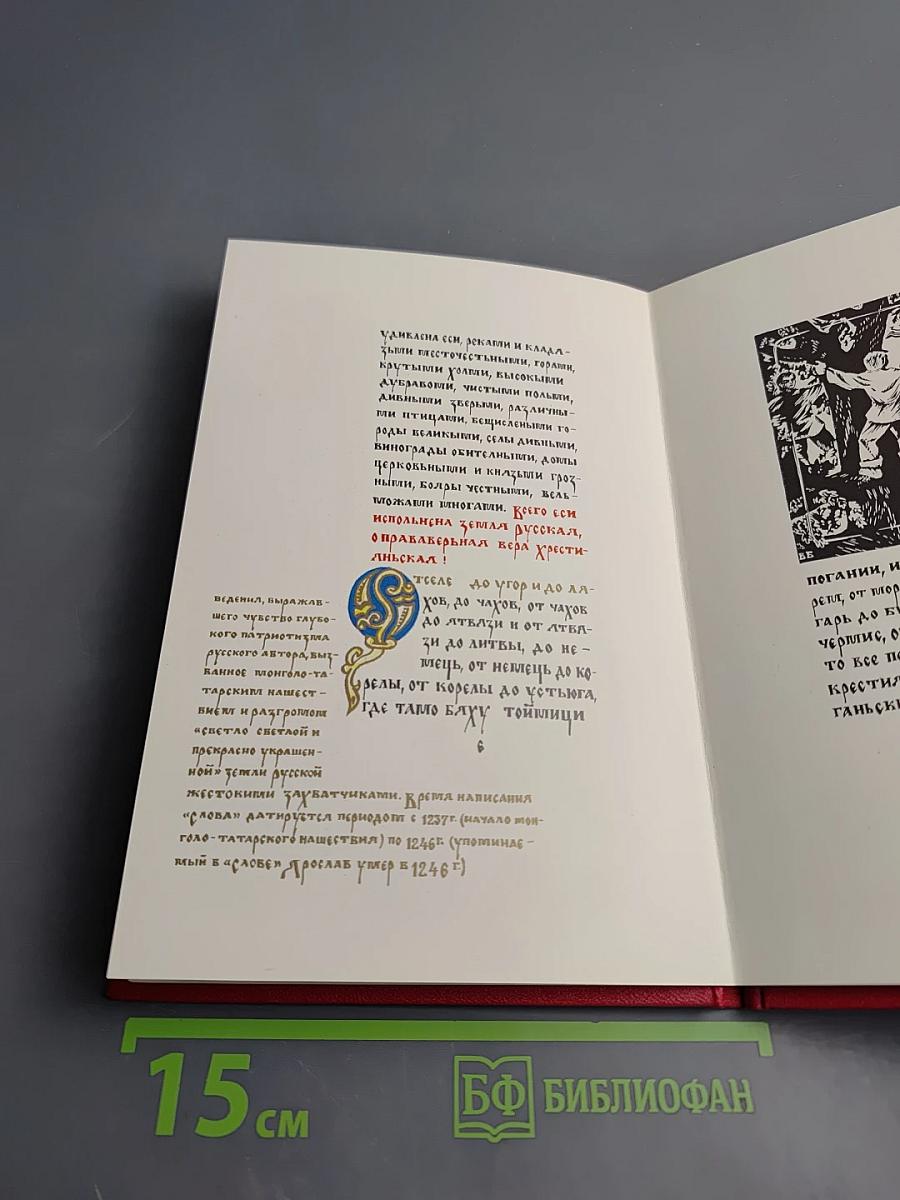 удивлена еси, реками и кладя-
зьми месточестьными, горами,
крутыми холми, высокыми
дубравоми, чистыми польми,
дивными зверьми, различны-
ми птицами, бещислеными го-
роды великыми, селы дивными,
винограды обителными, домы
церковьными и князьми гроз-
ными, бояры честными, вель-
можами многами. Всего еси
испольнена земля Русская,
о прававерьная вера хрести-
яньская!
Отселе до угор и до ля-
хов, до чахов, от чахов
до ятвязи и от ятвя-
зи до литвы, до не-
мець, от немець до ко-
релы, от корелы до Устьюга,
где тамо бяху тоймици
6
ведения, выражав-
шего чувство глубо-
кого патриотизма
русского автора, выз-
ванное монголо-та-
тарским нашест-
вием и разгромом
«светло светлой и
прекрасно украшен-
ной» земли Русской
жестокими захватчиками. Время написания
«Слова» датируется периодом с 1237 г. (начало мон-
голо-татарского нашествия) по 1246 г. (упоминае-
мый в «Слове» Ярослав умер в 1246 г.)
ВБ
погании, и
рем, от мор
гарь до б
чермис, о
то все п
крестия
ганьски
15 см
БФ БИБЛИОФАН